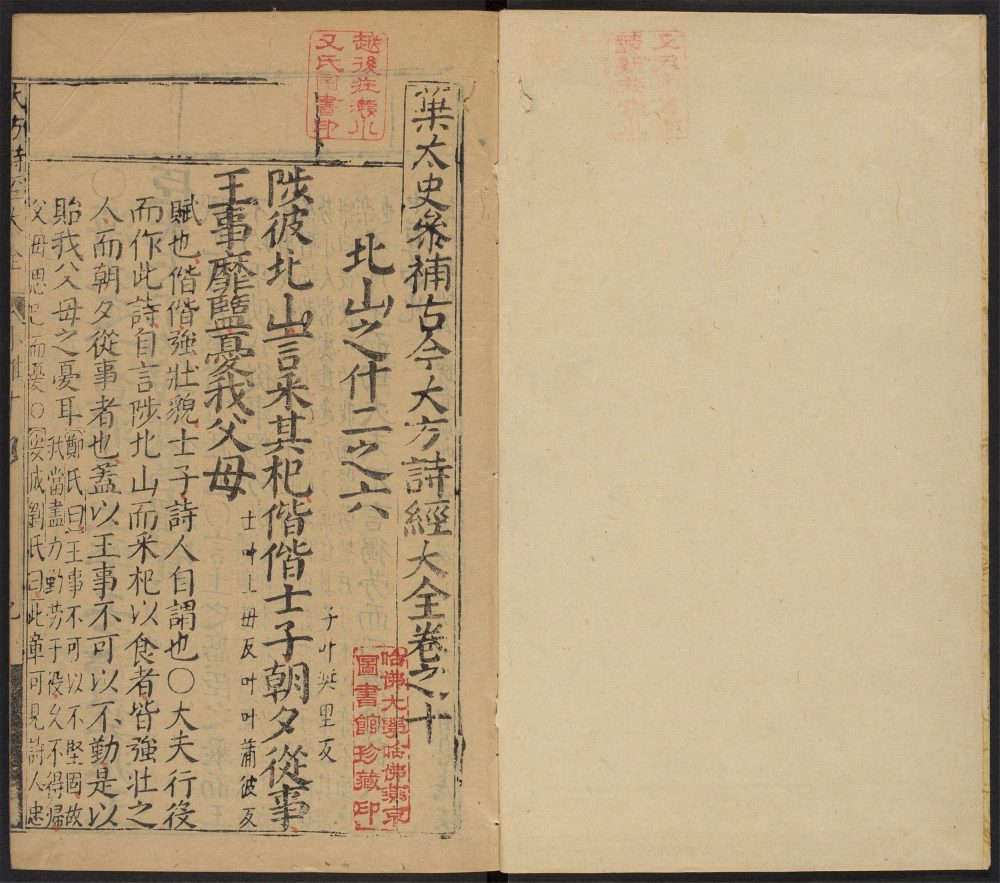 葉太史參補古今大方詩經大全卷之十
北山之什二之六
陟彼北山言采其杞偕偕士子朝夕從事
子叶奨里反
王事靡盬憂我父母
士叶上毋反叶叶蒲彼反
賦也偕偕強壯貌士子詩人自謂也○大夫行役
而作此詩自言陟北山而采杞以食者皆強壯之
人而朝夕從事者也蓋以王事不可以不勤是以
貽我父母之憂耳
鄭氏曰王事不可以不堅固故
我當盡力勤劳于役久不得歸
父母思己而憂○安成劉氏曰此章可見詩人忠
越後在瀨小
又氏圖書印
哈佛大學哈佛燕京
圖書館珍藏印